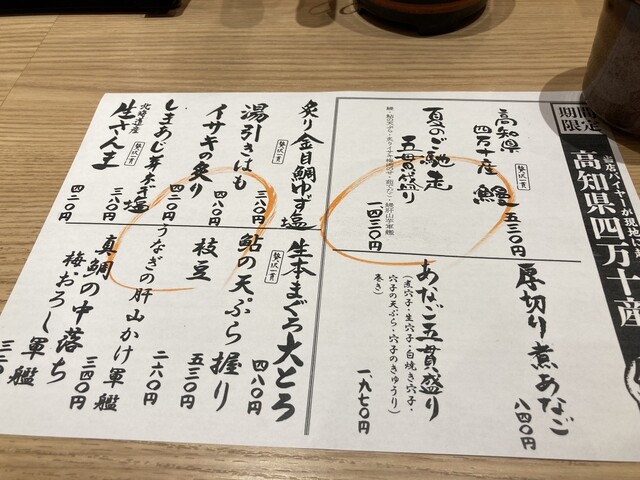 期間限定
高知県四万十産
高知県
四万十産 鰻
贅沢一貫
五三〇円
夏のご馳走
五貫盛り
一、四三〇円
厚切り煮あなご
八四〇円
あなご五貫盛り
(煮穴子・生穴子・白焼き穴子・
穴子の天ぷら・穴子のきゅうり
巻き)
一、九七〇円
炙り金目鯛ゆず塩
贅沢一貫
湯引きはも
三八〇円
イサキの炙り
四八〇円
しまあじ芽ねぎ塩
贅沢一貫
四二〇円
北海道産
生さんま
贅沢一貫
三八〇円
四二〇円
生本まぐろ大とろ
贅沢一貫
四八〇円
鮎の天ぷら握り
五三〇円
枝豆
二六〇円
うなぎの肝山かけ軍艦
三四〇円
真鯛の中落ち
梅おろし軍艦